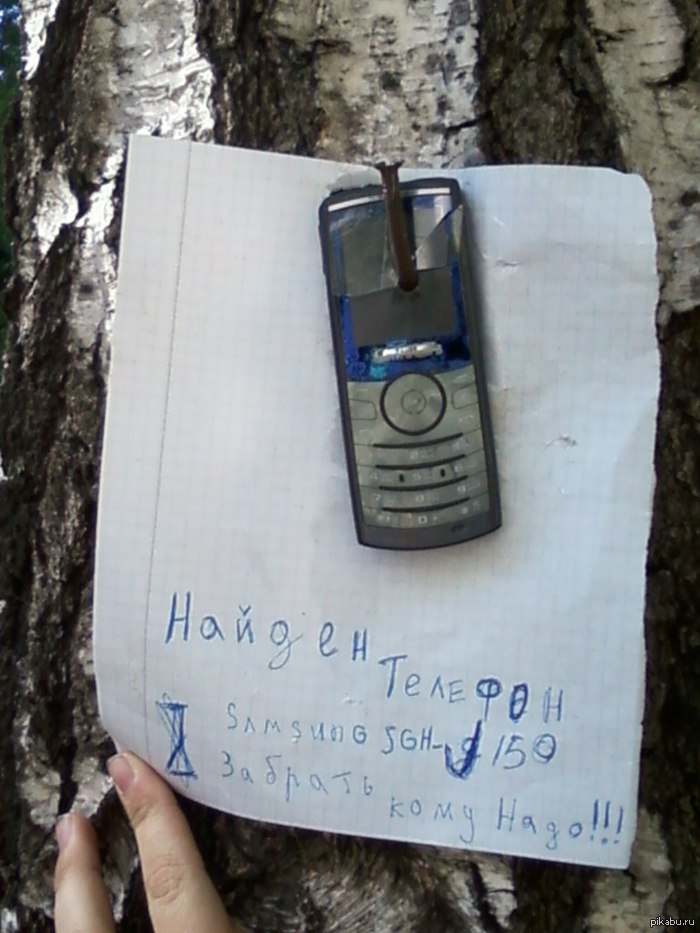 Найден
Телефон
SAMSUNG SGH-J150
Забрать
кому Надо!!!
pikabu.ru